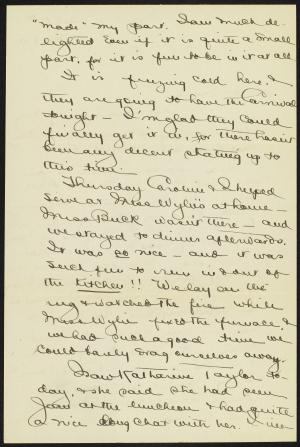 "made" my part. I am much de-
lighted even if it is quite a small
part, for it is fun to be in it at all
It is freezing cold here, &
they are going to have the Carnival
tonight - I'm glad they could
finally get it in, for there hasn't
been any decent skating up to
this time.
Thursday Caroline & I helped
serve at Miss Wylie's at home -
Miss Buck wasn't there - and
we stayed to dinner afterwards.
It was so nice - and it was
such fun to run in & out of
the kitchen!! We lay on the
rug & watched the fire while
Miss Wylie fixed the furnace, &
we had such a good time we
could barely drag ourselves away.
Saw Katharine Taylor to-
day, & she said she had seen
Jean at the luncheon & had quite
a nice long chat with her. I